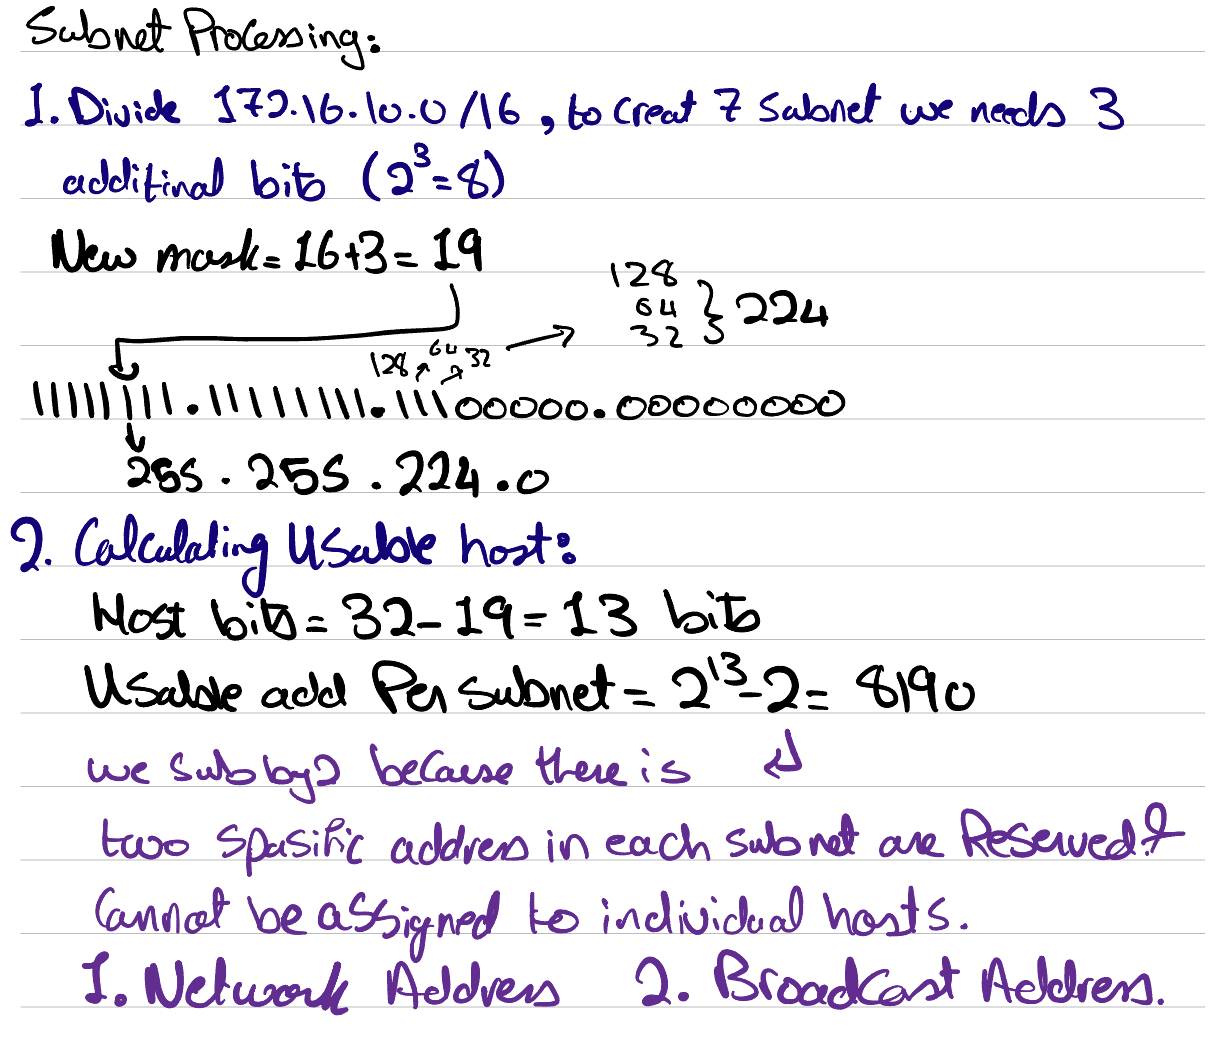 Subnet Processing:
1. Divide 172.16.10.0/16, to creat 7 Subnet we needs 3
additinal bits (2³=8)
New mask = 16+3 = 19
128
64 } 224
32
128 64 32
11111111.11111111.11100000.00000000
255.255.224.0
2. Calculating Usable host:
Host bits = 32-19 = 13 bits
Usable add Per subnet = 2¹³-2 = 8190
we sub by 2 because there is
two spasific address in each subnet are Reserved &
Cannot be assigned to individual hosts.
1. Network Address 2. Broadcast Address.